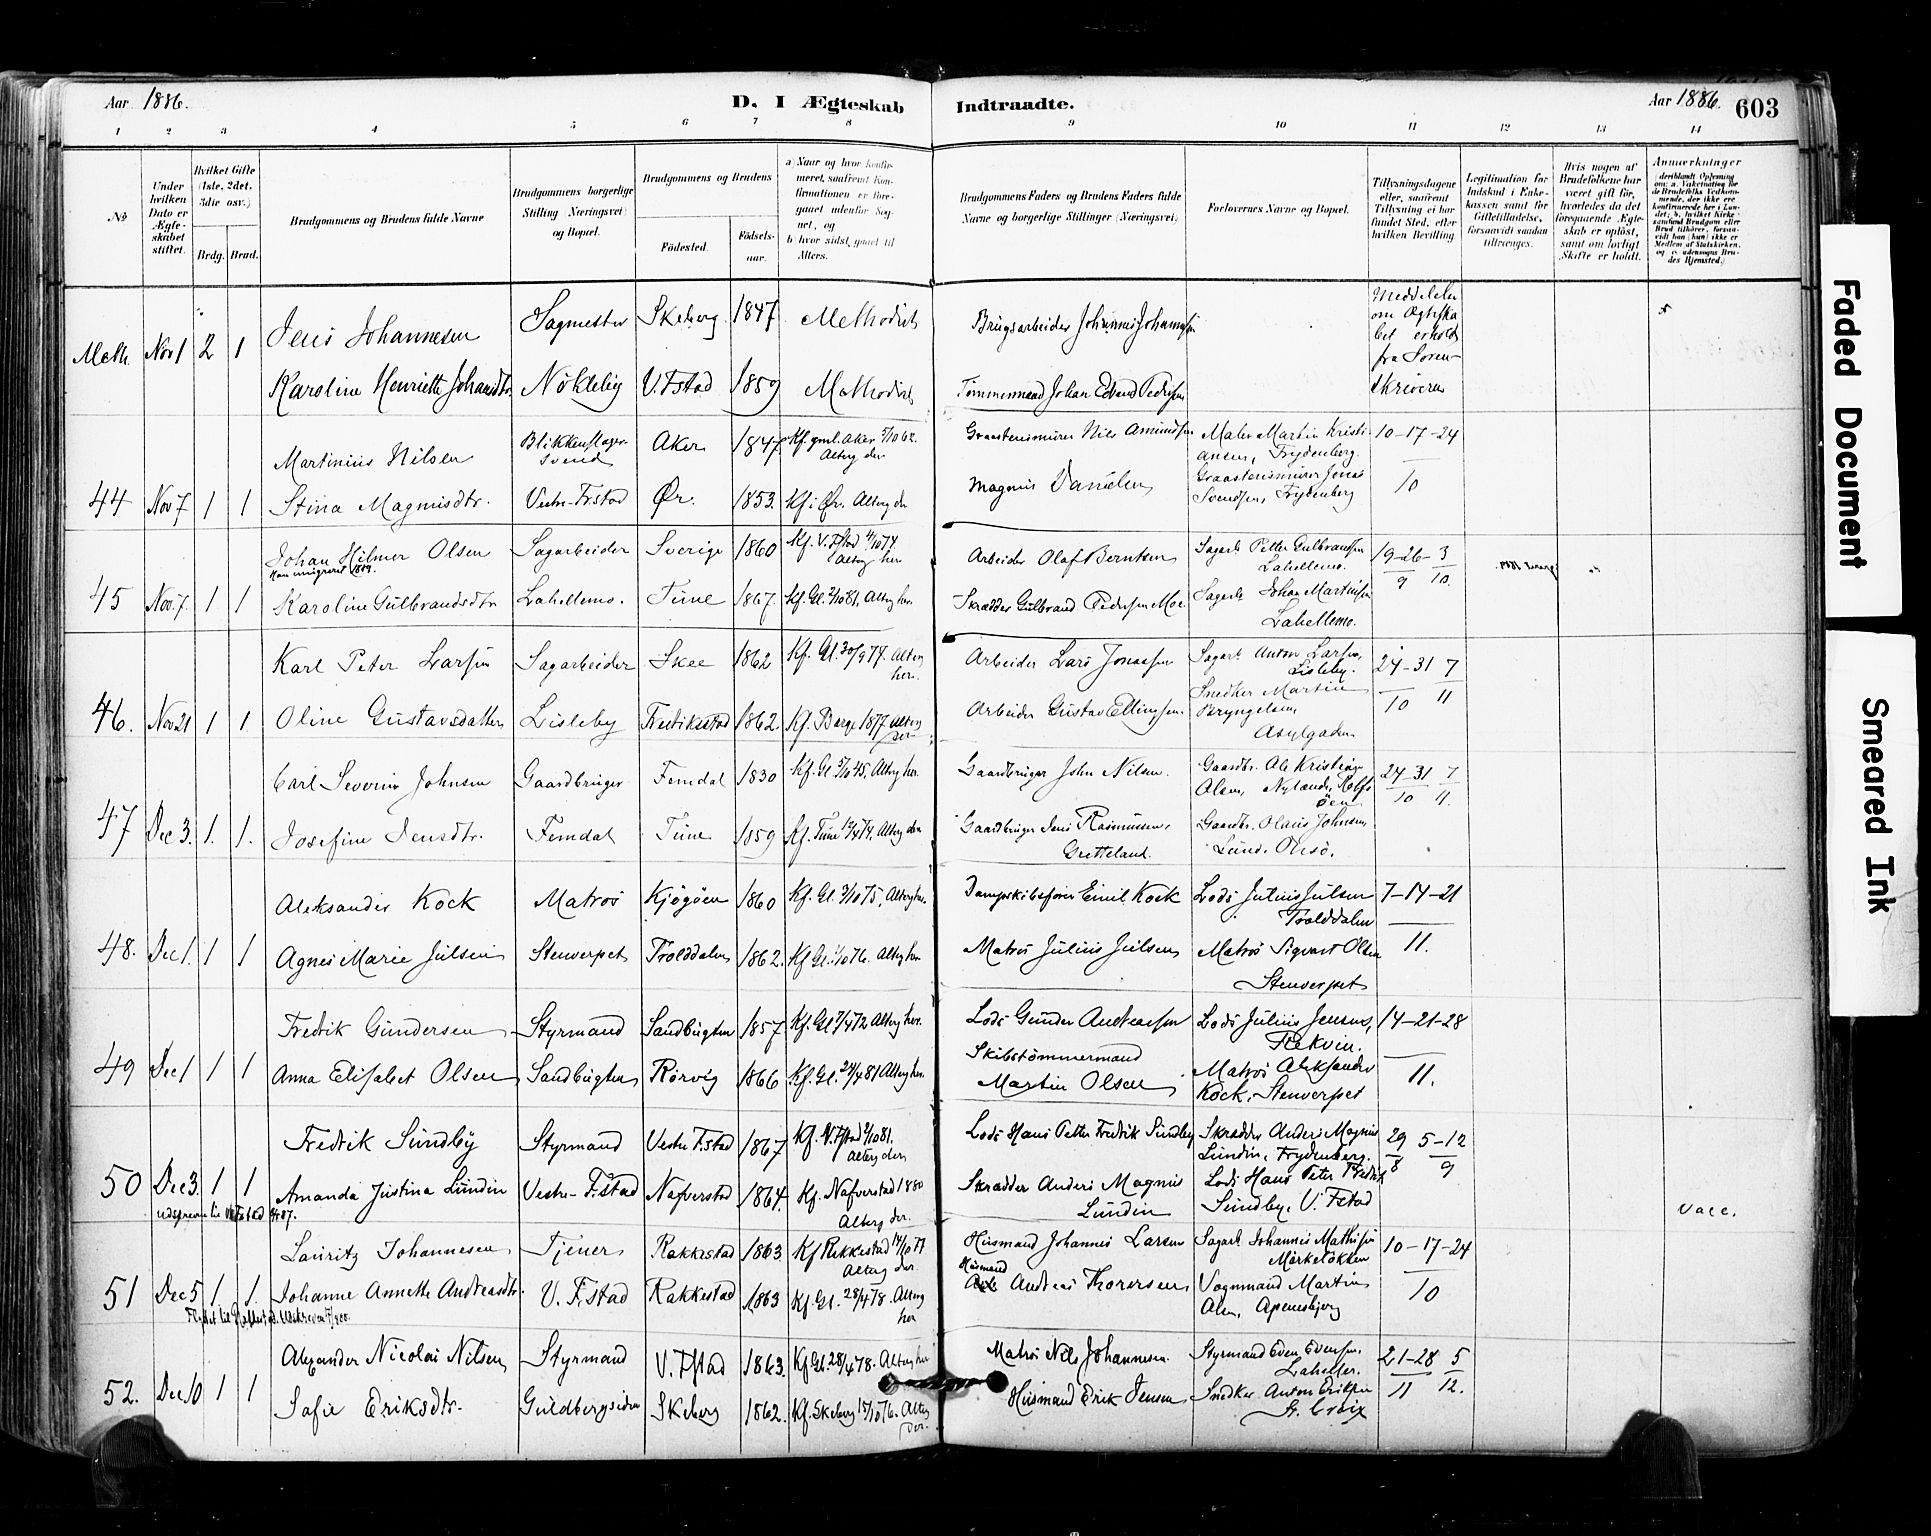 Aar 1886. D. I Ægteskab Indtraadte. Aar 1886. 603
1 2 3 4 5 6 7 8 9 10 11 12 13 14
No
Under hvilken Dato er Ægteskabet stiftet.
Hvilket Gifte (1ste, 2det, 3die osv.)
Brdg. Brud.
Brudgommens og Brudens fulde Navne
Brudgommens borgerlige Stilling (Næringsvei) og Bopæl.
Brudgommens og Brudens
Fødested. Fødselsaar.
a) Naar og hvor konfirmeret, saafremt Konfirmationen er foregaaet udenfor Sognet, og
b) hvor sidst gaaet til Alters.
Brudgommens Faders og Brudens Faders fulde Navne og borgerlige Stillinger (Næringsvei)
Forlovernes Navne og Bopæl.
Tillysningsdagene eller, saafremt Tillysning ei har fundet Sted, efter hvilken Bevilling
Legitimation for Indskud i Enkekassen samt for Giftetilladelse, forsaavidt saadan tiltrænges.
Hvis nogen af Brudefolkene har været gift før, hvorledes da det foregaaende Ægteskab er opløst, samt om lovligt Skifte er holdt.
Anmærkninger
Meth. Nov 1 2 1
Jens Johannesen Sagmester Skeberg 1847 Methodist Brugsarbeider Johannes Johannesen
Karoline Henriette Johansdtr. Nökleby V. Fstad 1859 Methodist Tømmermand Johan Edvard Pedersen
Meddelelse om Ægteskabet erholdt fra Sorenskriveren
44 Nov 7 1 1
Martinius Nilsen Blikkenslagersvend Aker 1847 Kf. gml. Aker 5/10 62. Alterg der Graastensmurer Nils Amundsen Maler Martin Kristiansen, Frydenberg. 10-17-24
Stina Magnusdtr. Vestre-Fstad Ør. 1853. Kf. i Ør. Alterg der Magnus Danielsen Graastensmurer Jonas Svendsen, Frydenberg 10
45 Nov 7. 1 1
Johan Hilmer Olsen Sagarbeider Sverige 1860 Kf. V. Fstad 4/10 74 Alterg her Arbeider Olaf Berntsen Sagarb. Petter Gulbrandsen Lahellemo. 19-26 3
Karoline Gulbrandsdtr Lahellemo. Tune 1867. Kf. Gl. 2/10 81. Alterg her. Skrædder Gulbrand Pedersen Moe. Sagarb. Johan Martinsen Lahellemo. 9 10.
46. Nov 21 1 1
Karl Peter Larsen Sagarbeider Skee 1862 Kf. Gl. 30/9 77. Alterg her. Arbeider Lars Jonassen Sagarb. Anton Larsen, Lisleby. 24-31 7
Oline Gustavsdatter Lisleby Fredrikstad 1862. Kf. Borge 1877 Alterg der Arbeider Gustav Ellingsen. Snedker Martin Bryngelsen, Asylgaden 10 11
47 Dec 3. 1. 1.
Carl Severin Johnsen Gaardbruger Femdal 1830 Kf. Gl. 5/10 45. Alterg her. Gaardbruger John Nilsen. Gaardbr. Ole Kristian Olsen, Nyland, Rolfsøen 24-31 7
Josefine Jensdtr. Femdal Tune 1859 Kf. Tune 12/4 74. Alterg der Gaardbruger Jens Rasmussen, Gretteland. Gaardbr. Olaus Johnsen, Lund. Onsø. 10 11.
48. Dec 1. 1 1
Aleksander Kock Matros Kjøgøen 1860 Kf. Gl. 3/10 75. Alterg her. Dampskibsfører Emil Kock Lods Julius Julsen Trolddalen 7-14-21
Agnes Marie Julsen Stenverpet Trolddalen 1862. Kf. Gl. 1/10 76. Alterg her Matros Julius Julsen Matros Sigvart Olsen Stenverpet 11.
49 Dec 1 1 1
Fredrik Gundersen Styrmand Sandbugten 1857. Kf. Gl. 7/4 72 Alterg her. Lods Gunder Andreassen Lods Julius Jensen, Rekvin. 14-21-28
Anna Elisabet Olsen Sandbugten Rørvig 1866 Kf. Gl. 24/4 81 Alterg her. Skibstømmermand Martin Olsen Matros Aleksander Kock, Stenverpet 11.
50 Dec 3. 1 1
Fredrik Sundby Styrmand Vestre Fstad 1867 Kf. V. Fstad 2/10 81. Alterg der Lods Hans Petter Fredrik Sundby Skrædder Anders Magnus Lundin, Frydenberg. 29 5-12
Amanda Justina Lundin Vestre-Fstad Nafverstad 1864. Kf. Nafverstad 1880 Alterg der. Skrædder Anders Magnus Lundin Lods Hans Peter Fredrik Sundby, V. Fstad 8 9
Vacc.
51 Dec 5 1. 1.
Lauritz Johannesen Tjener Rakkestad 1863. Kf Rakkestad 14/10 77 Alterg der. Husmand Johannes Larsen Sagarb. Johannes Mathisen Mørkeløkken 10-17-24
Johanne Annette Andreasdtr. V. Fstad Rakkestad 1863 Kf. Gl. 28/4 78. Alterg her Husmand Andreas Thoresen Vognmand Martin Olsen, Apenesbjerg 10
52. Dec 10 1 1
Alexander Nicolai Nilsen Styrmand V. Fstad 1863. Kf. Gl. 28/4 78. Alterg her Matros Nils Johannesen. Styrmand Eden Edensen, Laheller. 21-28 5
Sofie Eriksdtr. Guldbergsiden Skeberg 1862. Kf. Skeberg 15/10 76. Alterg der. Husmand Erik Jensen Snedker Anton Eriksen St. Croix 11 12.
Faded Document
Smeared Ink